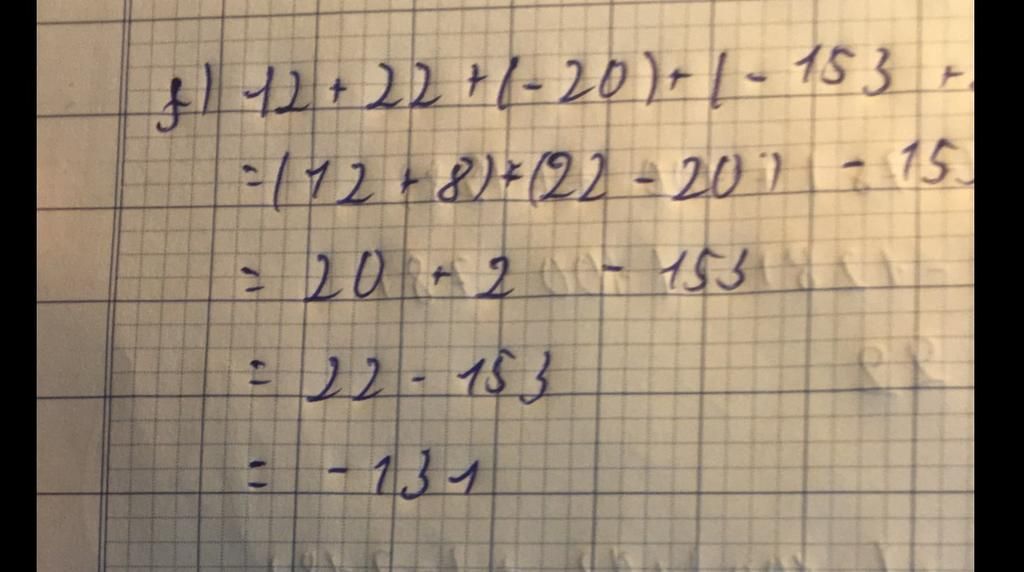 f) 12 + 22 + (-20) + ( - 153 +
= (12 + 8) + (22 - 20) - 15
= 20 + 2 - 153
= 22 - 153
= - 131